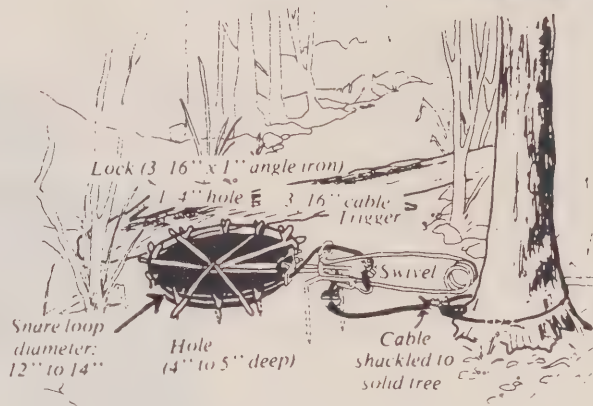 Lock (3 16" x 1" angle iron)
hole
3 16" cable
Trigger
Swivel
Snare loop
diameter:
12" to 14"
Hole
(4" to 5" deep)
Cable
shackled to
solid tree